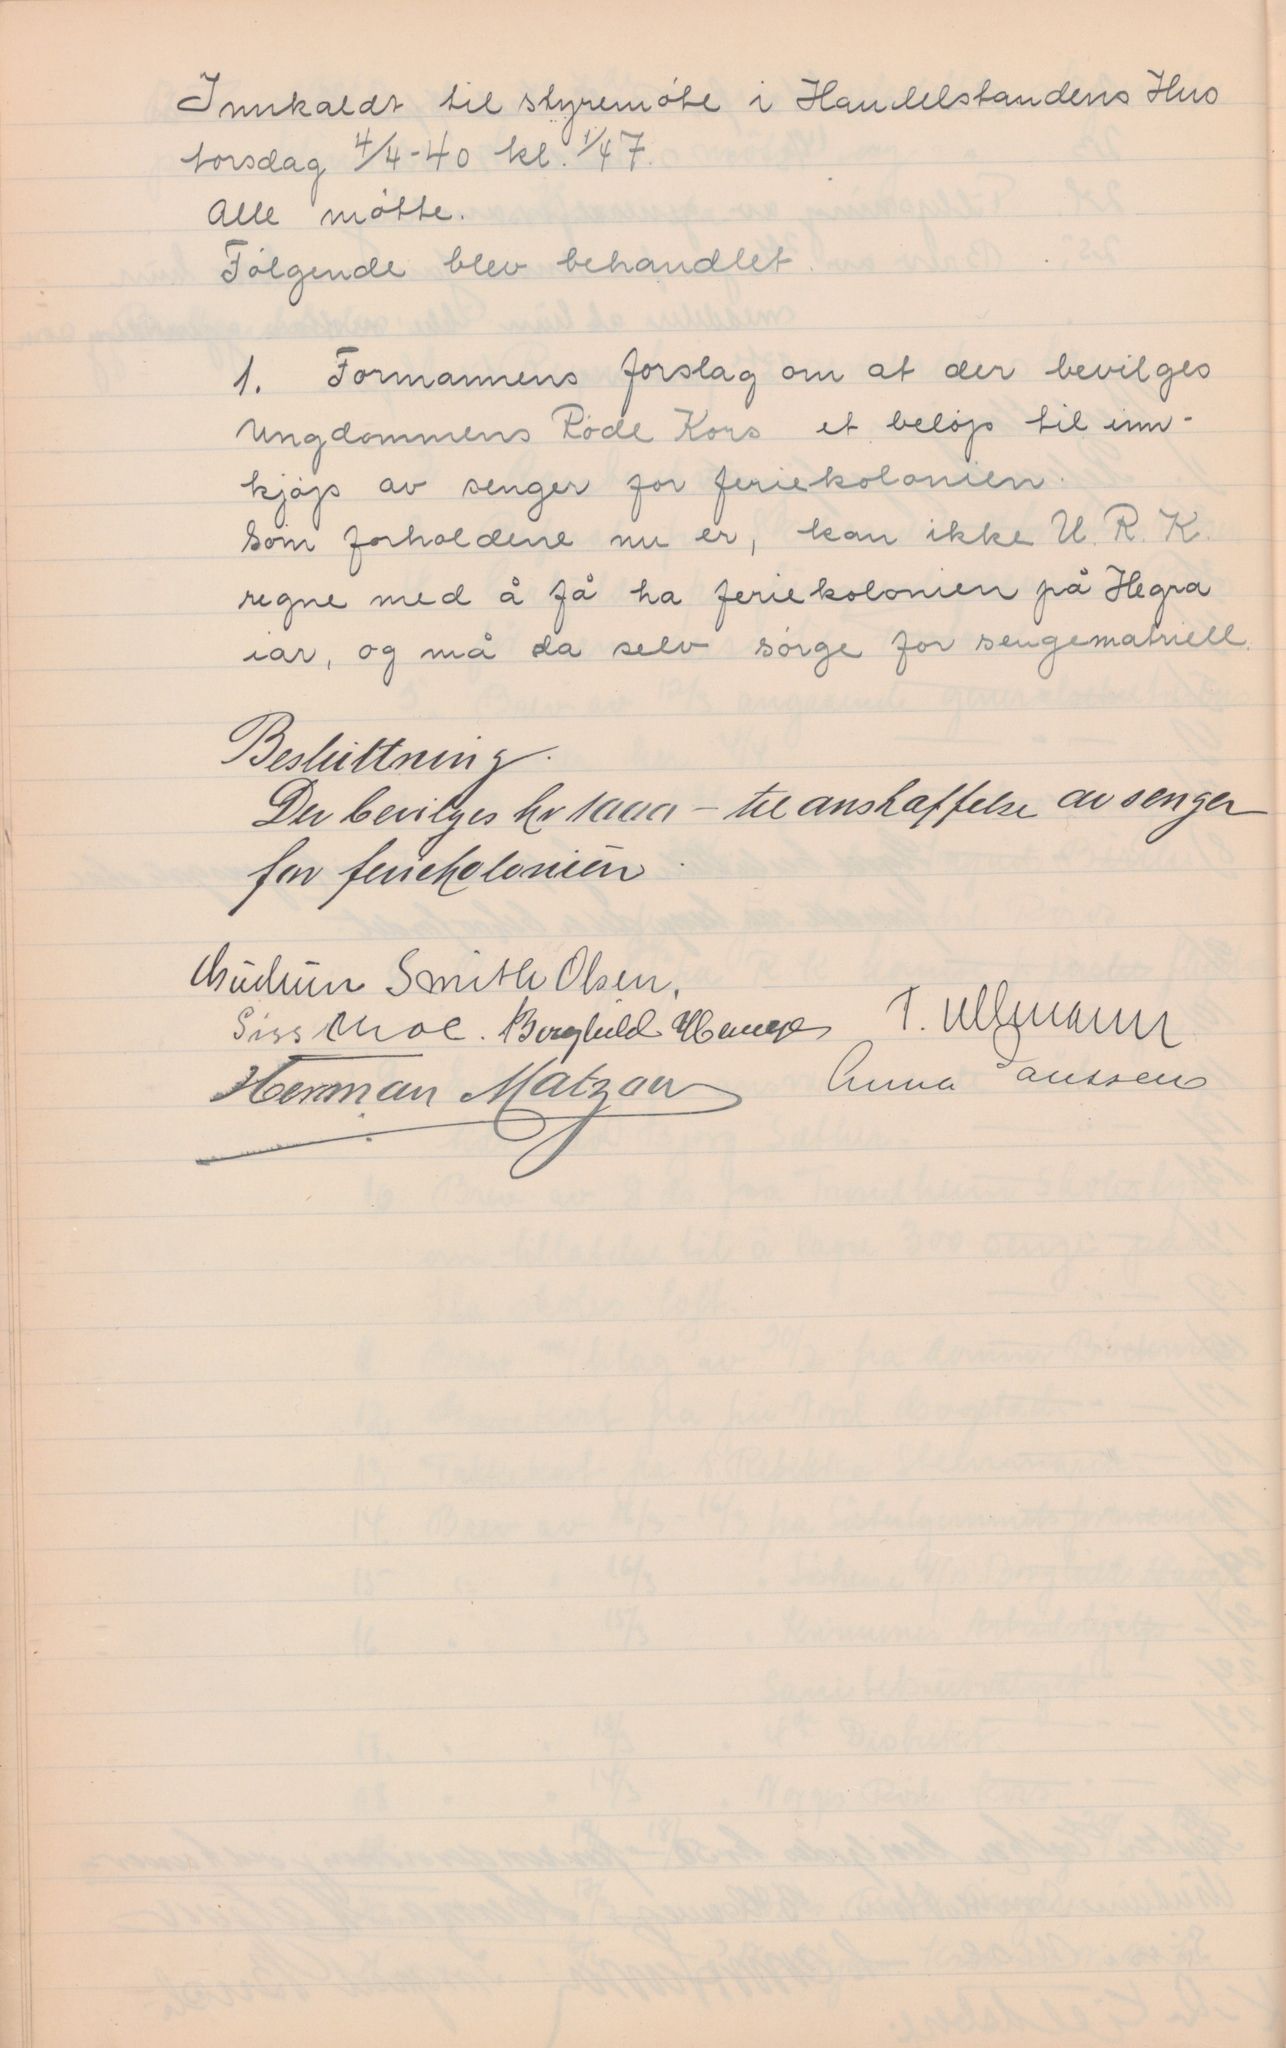 Innkaldt til styremøte i Handelstandens Hus
torsdag 4/4-40 kl. 1/47.
Alle møtte.
Følgende blev behandlet.
1. Formannens forslag om at der bevilges
Ungdommens Røde Kors et beløp til inn-
kjøp av senger for feriekolonien.
Som forholdene nu er, kan ikke U. R. K.
regne med å få ha feriekolonien på Hegra
iar, og må da selv sørge for sengematriell.
Besluttning.
Der bevilges kr 1000 - til anskaffelse av senger
for feriekolonien.
Gudrun Smith Olsen.
Siss Moe. Borghild Hauge T. Ullmann
Herman Matzow Anna Janssen